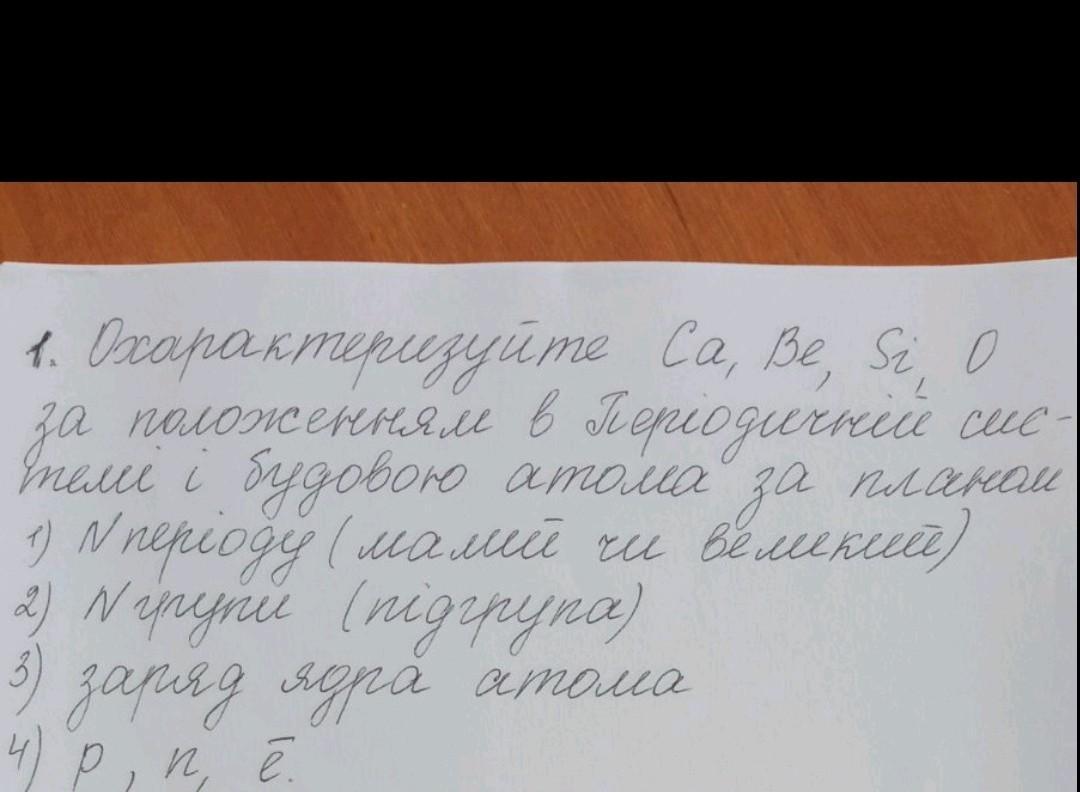 1. Охарактеризуйте Ca, Be, Si, O
за положенням в Періодичній сис-
темі і будовою атома за планом
1) N періоду (малий чи великий)
2) N групи (підгрупа)
3) заряд ядра атома
4) p, n, ē.